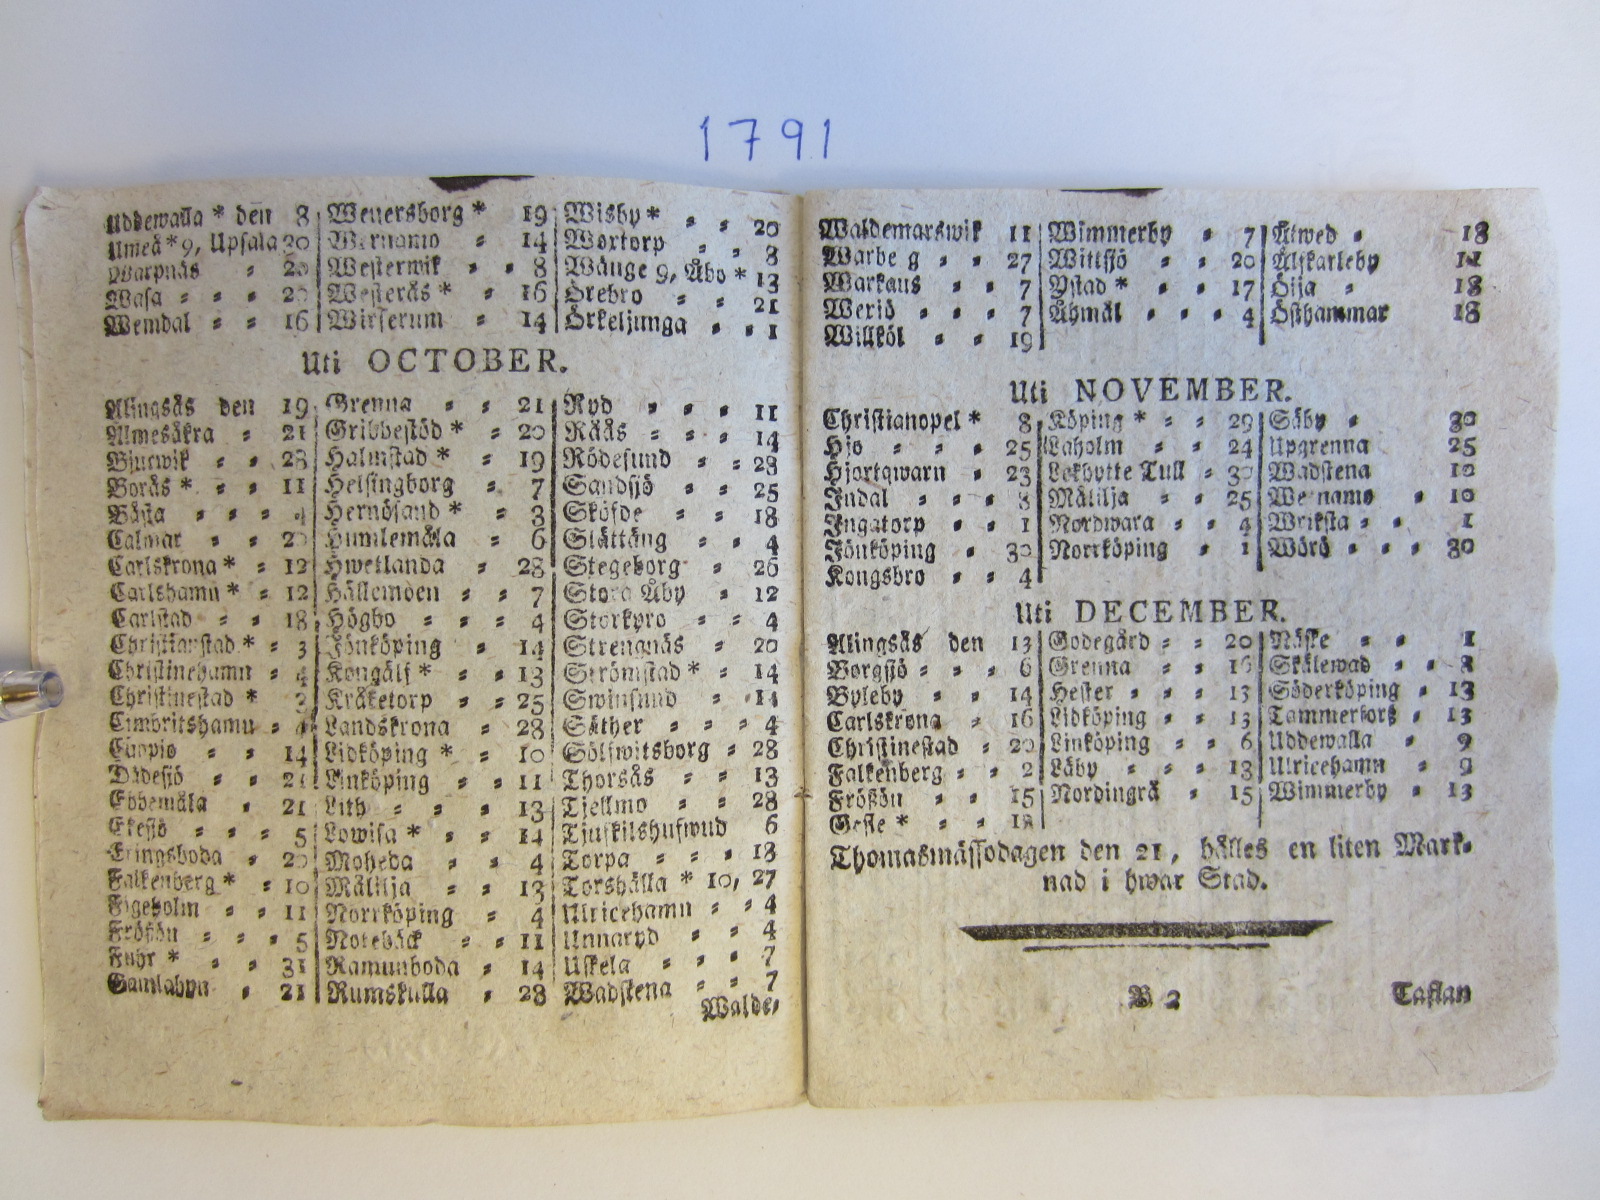 1791
Uddewalla * den 8
Umeå * 9, Upsala 20
Warpnäs = 20
Wasa = = = 20
Wemdal = = 16
Wenersborg * 19
Wernamo = 14
Westerwik = = 8
Westerås * = 16
Wirserum = 14
Wisby * = = 20
Wortorp = = 8
Wänge 9, Åbo * 13
Örebro = = 21
Örkeljunga = = 1
Uti OCTOBER.
Alingsås den 19
Almesåkra = 21
Bjurwik = = 28
Borås * = = 11
Båsta = = = 4
Calmar = = 20
Carlskrona * = 12
Carlshamn * = 12
Carlstad = = 18
Christianstad * = 3
Christinehamn = 4
Christinestad * 3
Cimbritshamn = 4
Cuopio = = 14
Dädesjö = = 21
Ebbemåla = 21
Ekesjö = = = 5
Eringsboda = 20
Falkenberg * = 10
Figeholm = = 11
Frößön = = = 5
Fuhr * = = 31
Gamlabyn = 21
Grenna = = 21
Gribbestöd * = 20
Halmstad * = 19
Helsingborg = 7
Hernösand * = 3
Humlemåla = 6
Hwetlanda = 28
Hällemoen = = 7
Högbo = = = 4
Jönköping = 14
Kongälf * = = 13
Kråketorp = = 25
Landskrona = 28
Lidköping * = 10
Linköping = = 11
Lith = = = 13
Lowisa * = = 14
Moheda = = 4
Målilja = = 13
Norrköping = 4
Notebäck = = 11
Ramunboda = 14
Rumskulla = 28
Ryd = = = 11
Råås = = = 14
Rödesund = = 28
Sandsjö = = 25
Sköfde = = 18
Slättäng = = 4
Stegeborg = 26
Stora Åby = 12
Storkyro = = 4
Strengnäs = 20
Strömstad * = 14
Swinsund = 14
Säther = = = 4
Sölfwitsborg = 28
Thorsås = = 13
Tjellmo = = 28
Tjuskilshufwud 6
Torpa = = = 18
Torshälla * 10, 27
Ulricehamn = = 4
Unnaryd = = 4
Uskela = = = 7
Wadstena = = 7
Walde=
Waldemarswik 11
Warbe g = = 27
Warkaus = = 7
Weriö = = = 7
Willköl = = 19
Wimmerby = 7
Wittsjö = = 20
Ystad * = = 17
Åhmål = = = 4
Älwed = 18
Älfkarleby 11
Öija = 18
Östhammar 18
Uti NOVEMBER.
Christianopel * 8
Hjo = = = 25
Hjortqwarn = 23
Indal = = = 8
Ingatorp = = 1
Jönköping = 30
Kongsbro = = 4
Köping * = = 29
Laholm = = 24
Lekhytte Tull = 30
Målilja = = 25
Nordwara = = 4
Norrköping = 1
Säby = 30
Upgrenna 25
Wadstena 10
We namo = 10
Wriksta = = 1
Wörå = = = 30
Uti DECEMBER.
Alingsås den 13
Borgsjö = = = 6
Byleby = = 14
Carlskrona = 16
Christinestad = 20
Falkenberg = = 2
Frößön = = 15
Gefle * = = 18
Godegård = = 20
Grenna = = 16
Hester = = = 13
Lidköping = = 13
Linköping = = 6
Låby = = = 13
Nordingrå = 15
Näske = = 1
Skälewad = = 8
Söderköping = 13
Tammerforß = 13
Uddewalla = 9
Ulricehamn = 9
Wimmerby = 13
Thomasmässodagen den 21, hålles en liten Mark=
nad i hwar Stad.
B 2 Taflan